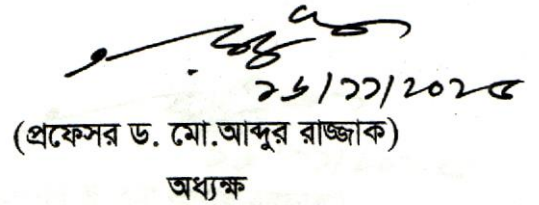 ২৬/১১/২০২৫
(প্রফেসর ড. মো.আব্দুর রাজ্জাক)
অধ্যক্ষ